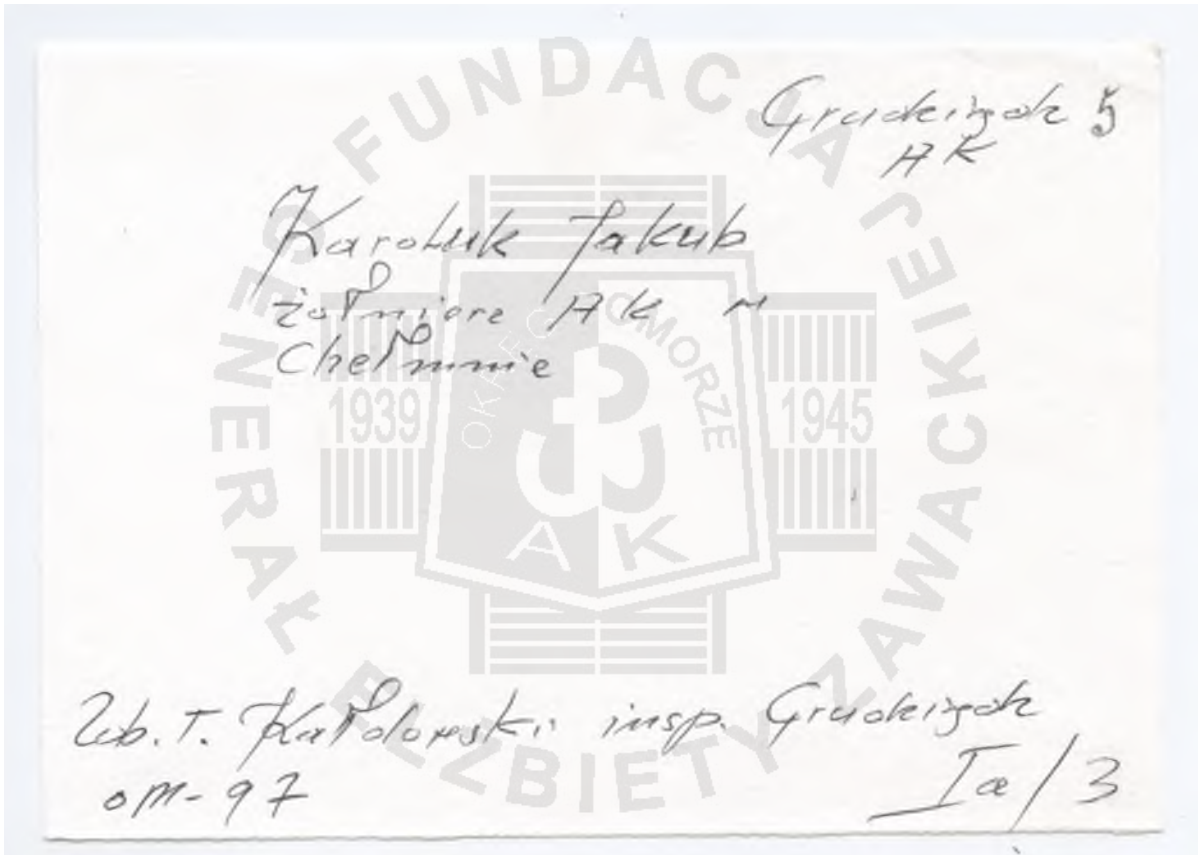 Grudziądz 5
AK
Karoluk Jakub
żołnierz AK w
Chełmnie
Zeb. T. Kałdowski insp. Grudziądz
OM-97
Ia/3
FUNDACJA
GENERAŁ ELŻBIETY ZAWACKIEJ
OKRĘG POMORZE
1939
1945
AK